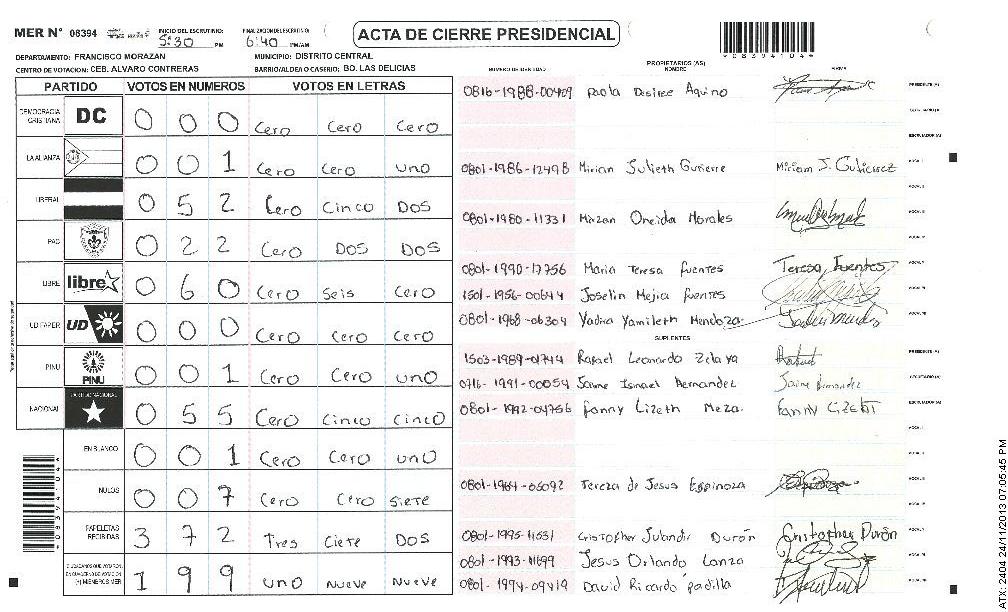 MER N° 08394 INICIO DEL ESCRUTINIO: 5:30 PM FINALIZACION DEL ESCRUTINIO: 6:40 PM/AM ACTA DE CIERRE PRESIDENCIAL
*08394104*
DEPARTAMENTO: FRANCISCO MORAZAN MUNICIPIO: DISTRITO CENTRAL
CENTRO DE VOTACION: CEB. ALVARO CONTRERAS BARRIO/ALDEA O CASERIO: BO. LAS DELICIAS
PARTIDO VOTOS EN NUMEROS VOTOS EN LETRAS
DEMOCRACIA CRISTIANA DC 0 0 0 Cero Cero Cero
LA ALIANZA 0 0 1 Cero Cero uno
LIBERAL 0 5 2 Cero Cinco DOS
PAC 0 2 2 Cero DOS DOS
LIBRE libre 0 6 0 Cero Seis Cero
UD FAPER UD 0 0 0 Cero Cero Cero
PINU PINU 0 0 1 Cero Cero uno
NACIONAL PARTIDO NACIONAL 0 5 5 Cero Cinco Cinco
EN BLANCO 0 0 1 Cero Cero uno
NULOS 0 0 7 Cero Cero Siete
PAPELETAS RECIBIDAS 3 7 2 Tres Ciete DOS
1 9 9 uno Nueve Nueve
NUMERO DE IDENTIDAD PROPIETARIOS (AS) NOMBRE FIRMA
0816-1988-00409 Paola Desiree Aquino
0801-1986-12498 Miriam Julieth Gutierre Miriam J. Gutierrez
0801-1980-11331 Mirzan Oneida Morales
0801-1990-17756 Maria Teresa fuentes Teresa Fuentes
1501-1956-00644 Joselin Mejia fuentes
0801-1968-06304 Yadira Yamileth Mendoza
SUPLENTES
1503-1989-01744 Rafael Leonardo Zelaya
0716-1991-00054 Jaime Ismael Hernandez Jaime Hernandez
0801-1992-04756 fanny Lizeth Meza. Fanny Lizeth
0801-1964-05092 Tereza de Jesus Espinoza
0801-1995-11531 Cristopher Durón Cristopher Durón
0801-1993-11699 Jesus Orlando Lanza
0801-1994-09419 David Ricardo padilla
ATX 2404 24/11/2013 07:05:45 PM